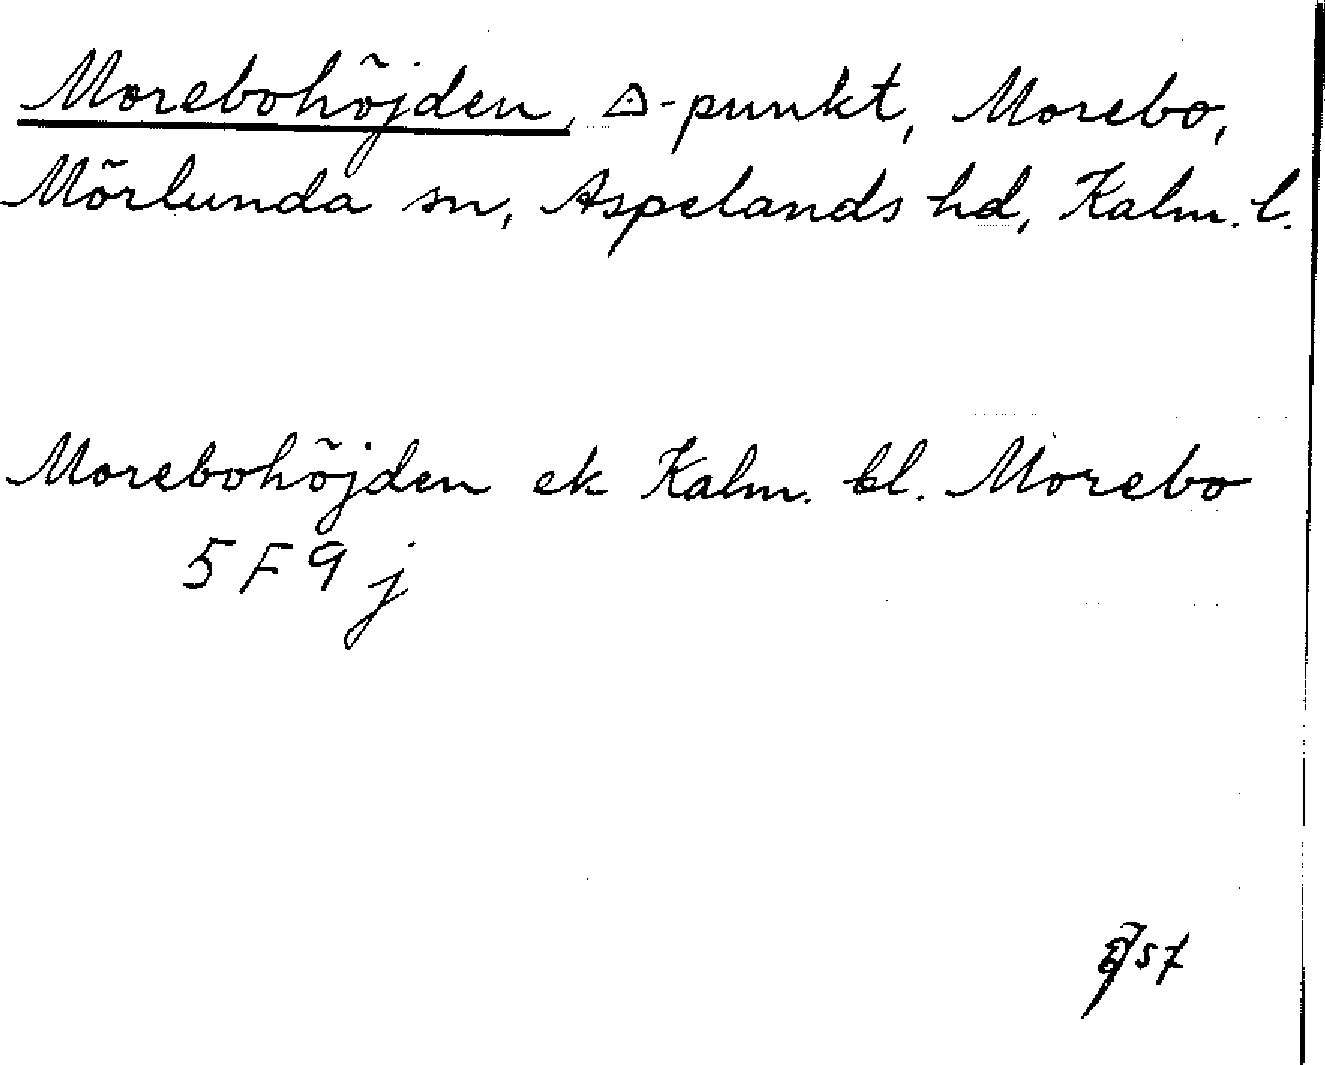 Morebohöjden, △-punkt, Morebo,
Mörlunda sn, Aspelands hd, Kalm. l.
Morebohöjden ek Kalm. bl. Morebo
5 F 9 j
57